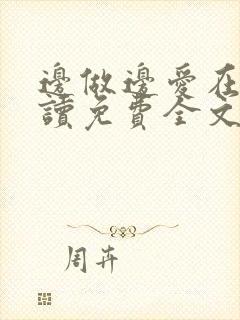 邊做邊愛在
讀免費全文
周卉